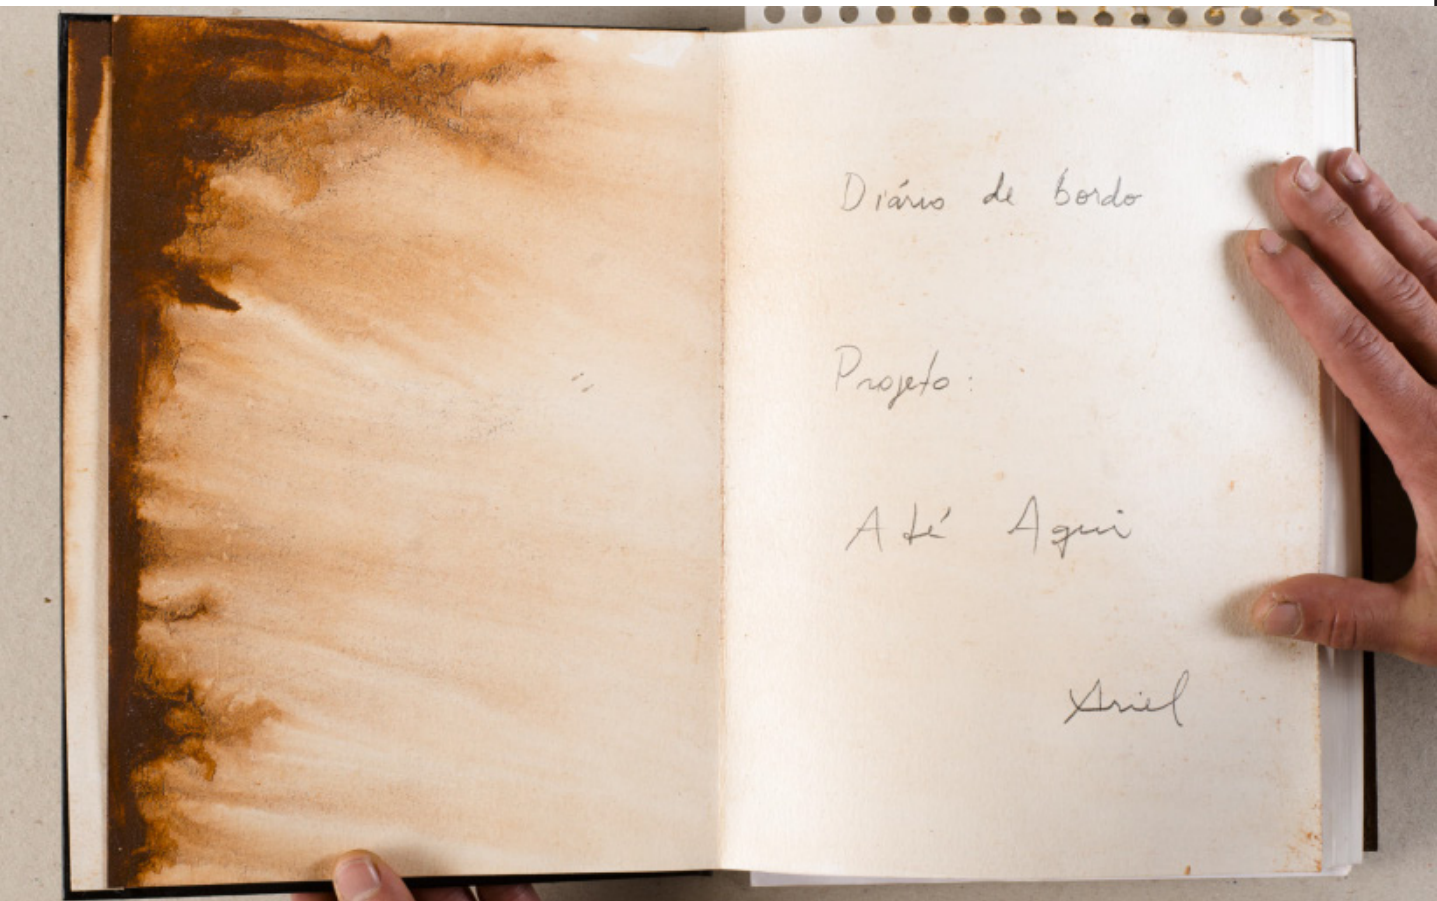 Diário de bordo
Projeto:
Até Aqui
Ariel